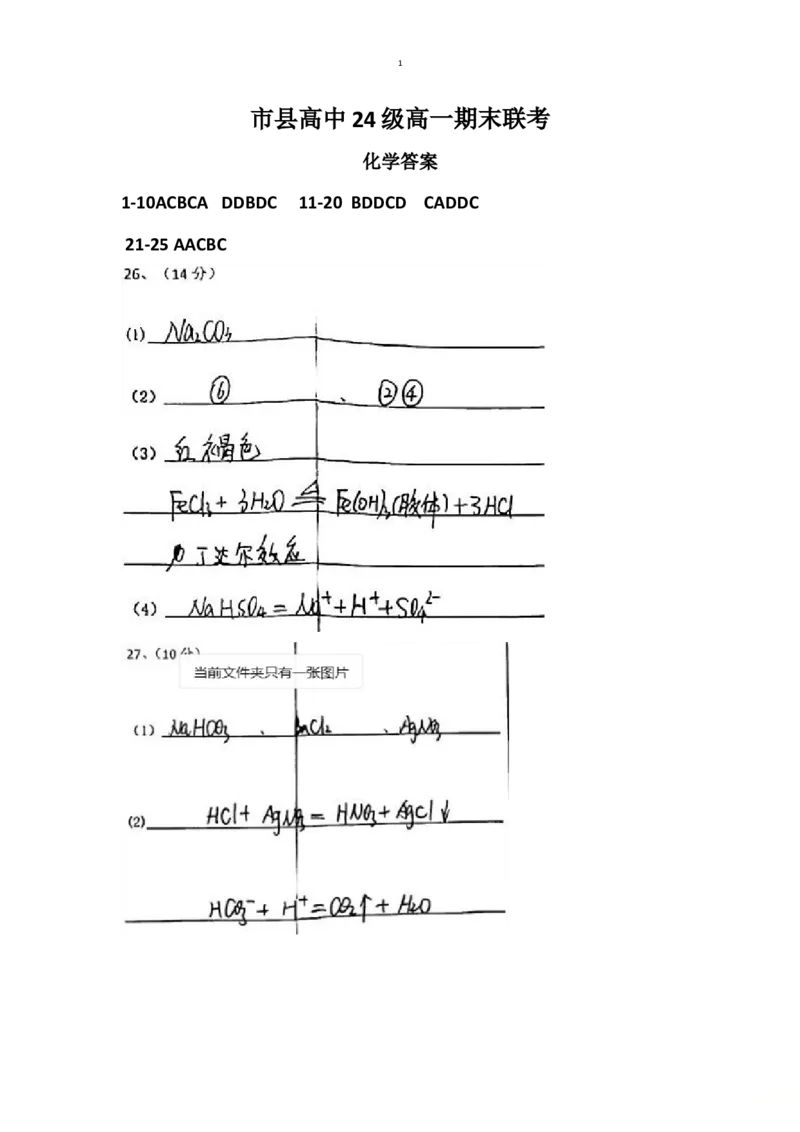 1
市县高中 24 级高一期末联考
化学答案
1-10ACBCA DDBDC 11-20 BDDCD CADDC
21-25 AACBC
26、（14 分）
(1) Na₂CO₃
(2) ⑥ 、 ②④
(3) 红褐色
FeCl₃ + 3H₂O ≜ Fe(OH)₃(胶体) + 3HCl
丁达尔效应
(4) NaHSO₄ = Na⁺ + H⁺ + SO₄²⁻
27、（10 分）
当前文件夹只有一张图片
(1) NaHCO₃ 、 BaCl₂ 、 AgNO₃
(2) HCl + AgNO₃ = HNO₃ + AgCl↓
HCO₃⁻ + H⁺ = CO₂↑ + H₂O